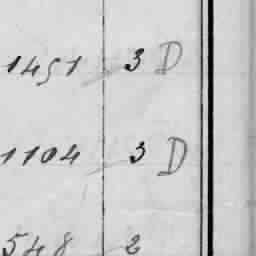 1451 3 D
1104 3 D
548 2